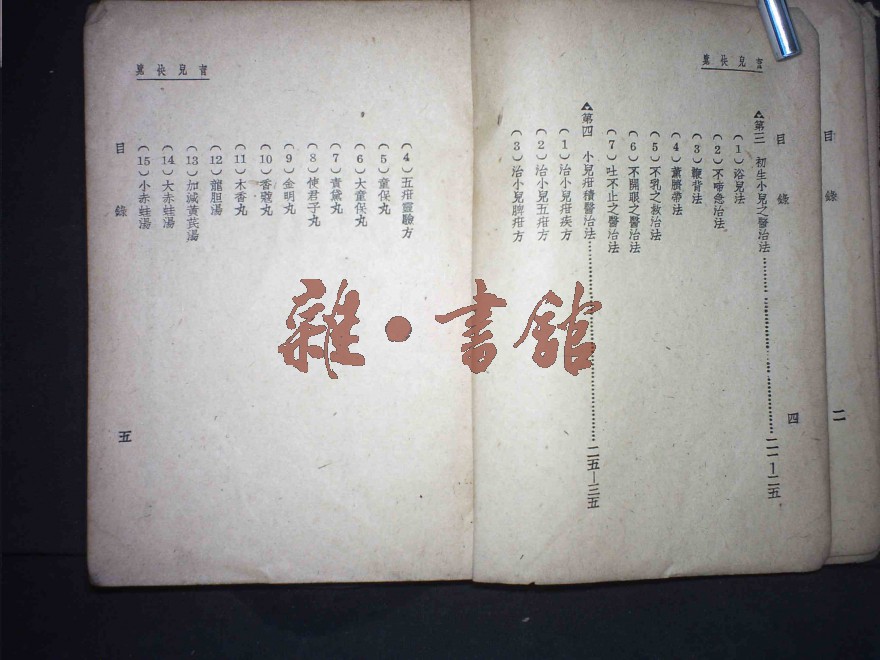 育兒快覽
目錄
第三 初生小兒之醫治法……二一—二五
(1)浴兒法
(2)不啼急治法
(3)鞭背法
(4)薰臍帶法
(5)不乳之救治法
(6)不開眼之醫治法
(7)吐不止之醫治法
第四 小兒疳積醫治法……二五—三五
(1)治小兒疳疾方
(2)治小兒五疳方
(3)治小兒脾疳方
四
育兒快覽
(4)五疳靈驗方
(5)童保丸
(6)大童保丸
(7)青黛丸
(8)使君子丸
(9)金明丸
(10)香蔻丸
(11)木香丸
(12)龍胆湯
(13)加減黃芪湯
(14)大赤蛙湯
(15)小赤蛙湯
目錄
五
目錄
二
雜·書館